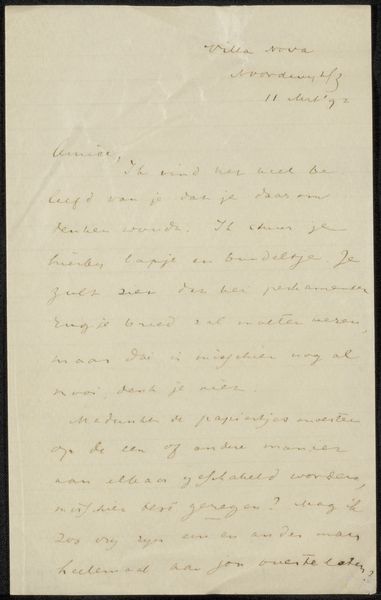 Villa Nova
Noordwijk a/z
11 Mrt '92
Amice,
Ik vind het heel be
leefd van je dat je daarom
denken wondt. Ik stuur je
hierby lapje en bundeltje. Je
zult zien dat het perkamenten
rugje breed zal moeten wezen,
maar dat is misschien nog al
mooi, denk je niet.
Me dunkt de papiertjes moesten
op de een of andere manier
aan elkaar geschakeld worden,
misschien best geregen? Mag ik
zoo vry zyn een en ander maar
heelemaal aan jou overtelaten?